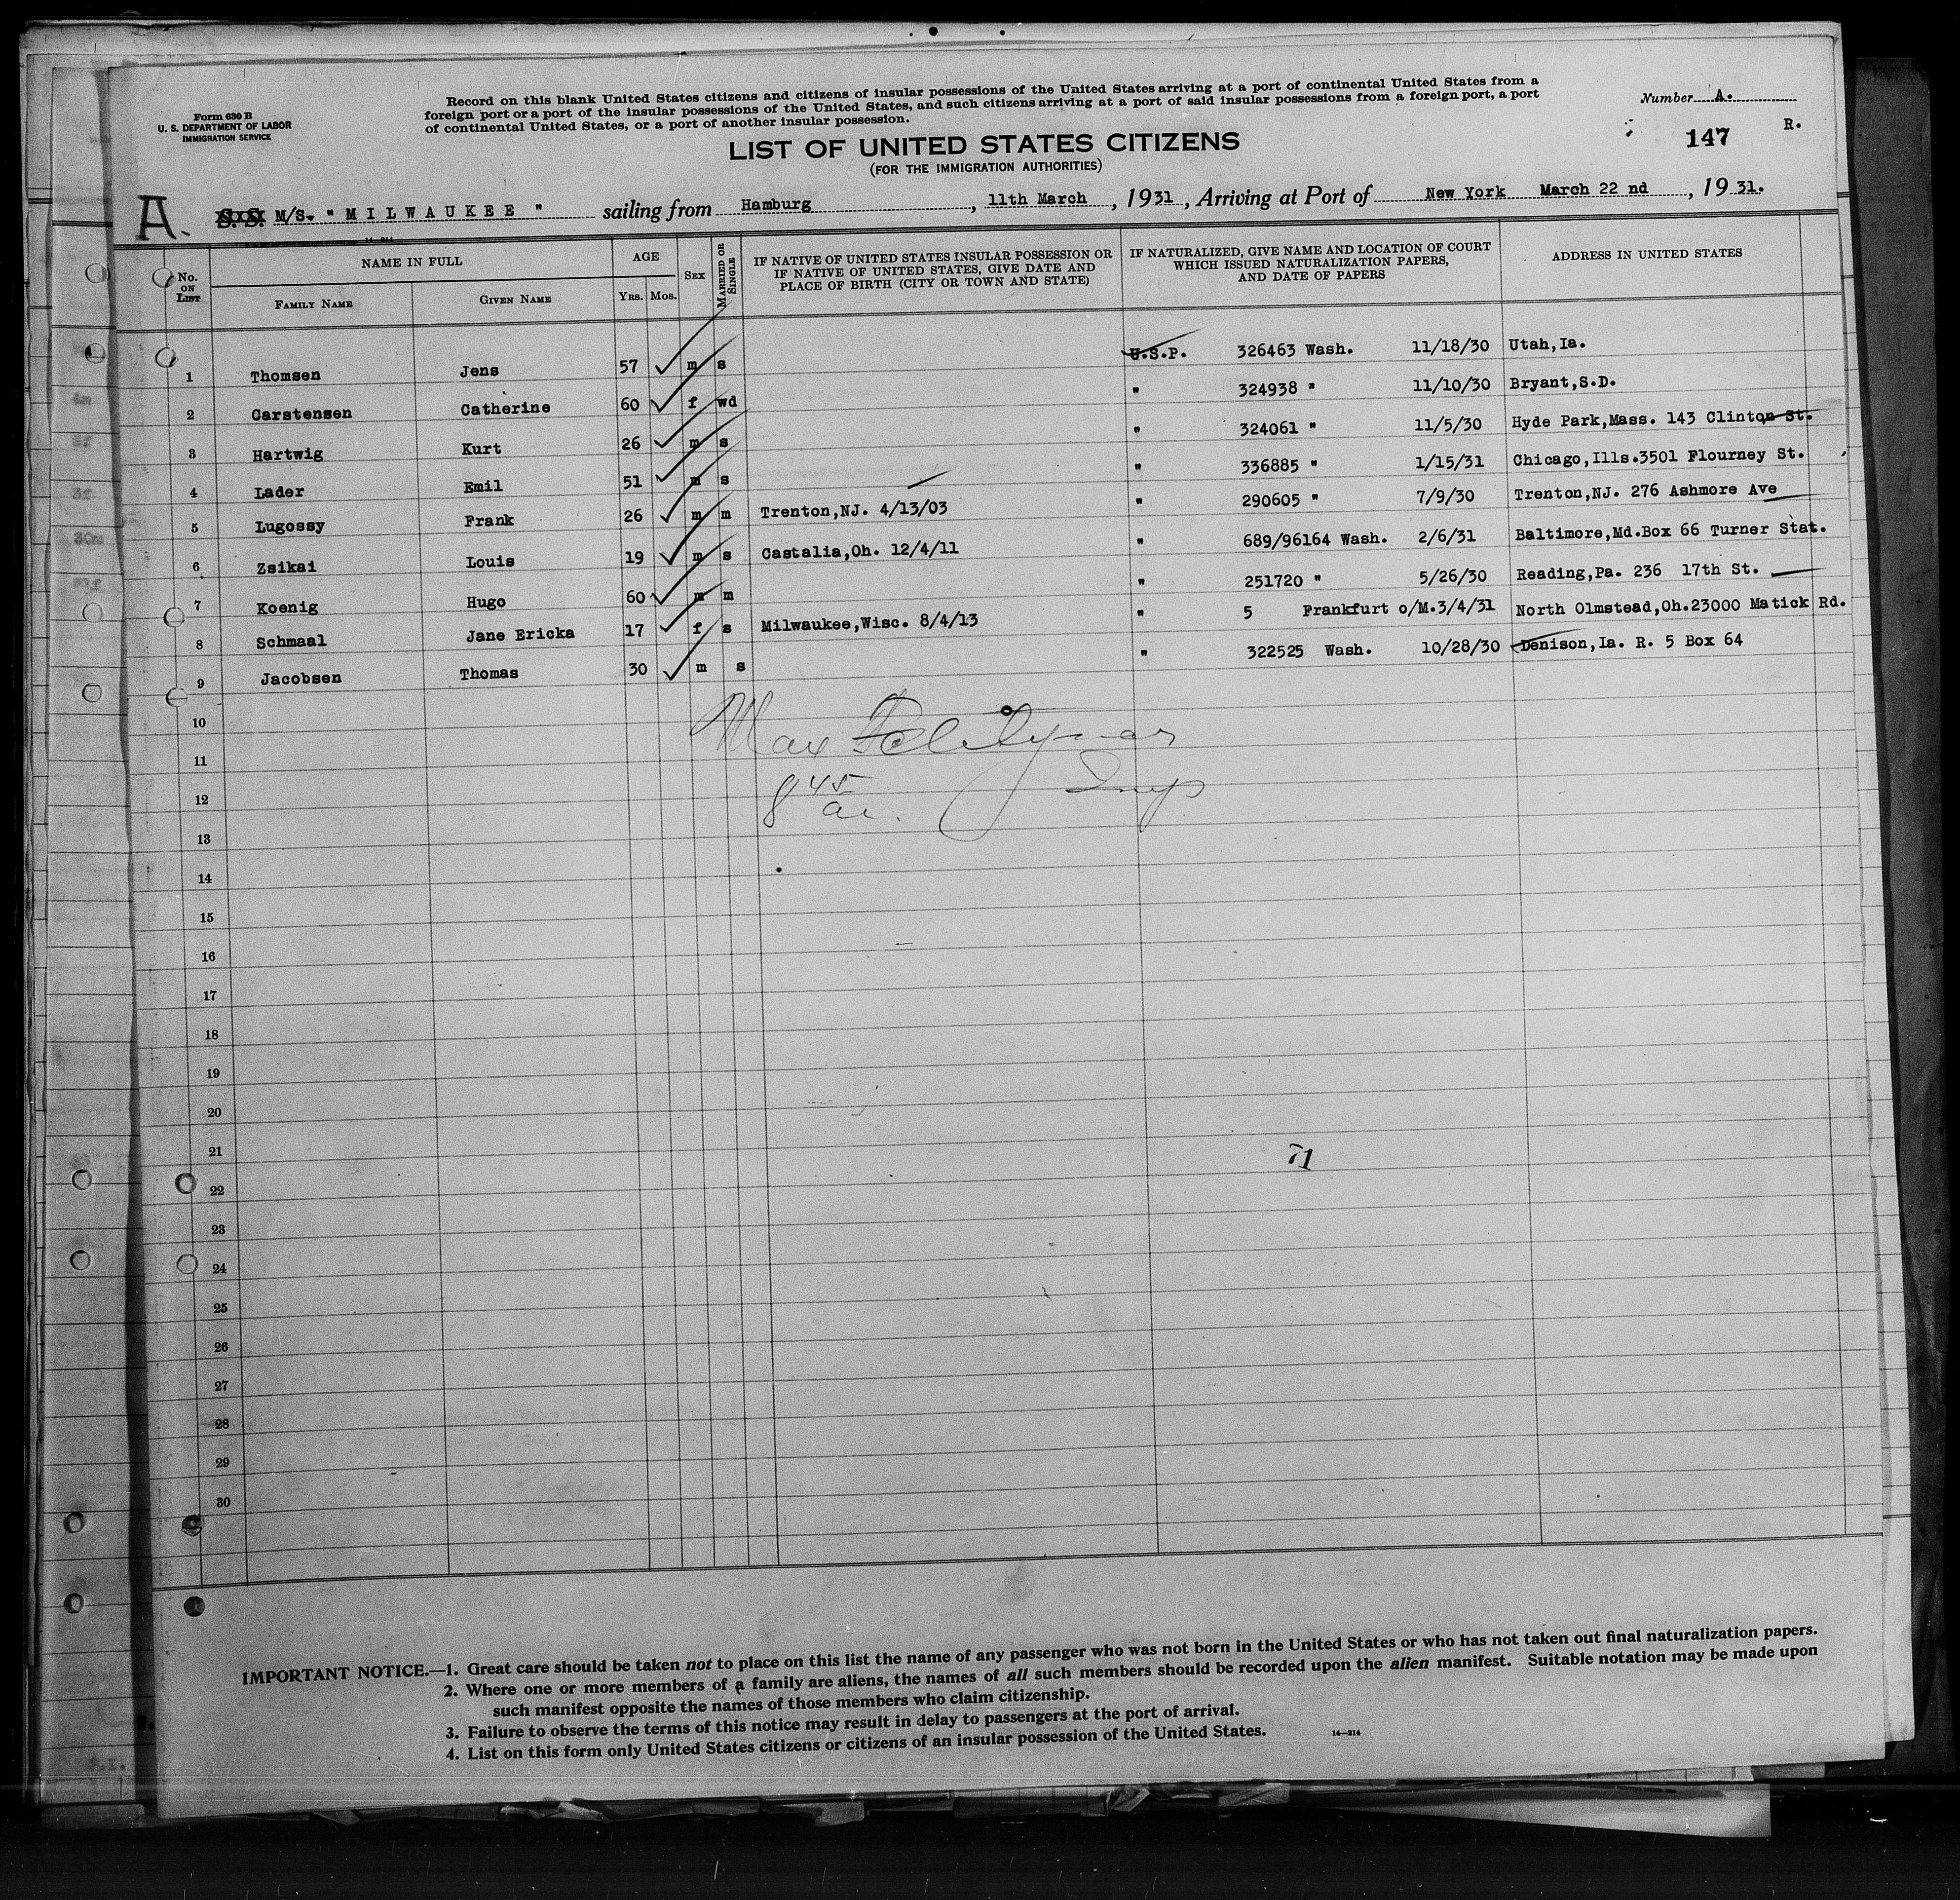 Form 630 B
U. S. DEPARTMENT OF LABOR
IMMIGRATION SERVICE
Record on this blank United States citizens and citizens of insular possessions of the United States arriving at a port of continental United States from a
foreign port or a port of the insular possessions of the United States, and such citizens arriving at a port of said insular possessions from a foreign port, a port
of continental United States, or a port of another insular possession.
Number A.
147 R.
LIST OF UNITED STATES CITIZENS
(FOR THE IMMIGRATION AUTHORITIES)
A. S. S. M/S. " MILWAUKEE " sailing from Hamburg, 11th March, 1931, Arriving at Port of New York March 22 nd, 1931.
No. ON LIST
NAME IN FULL
FAMILY NAME
GIVEN NAME
AGE
YRS. MOS.
SEX
MARRIED OR SINGLE
IF NATIVE OF UNITED STATES INSULAR POSSESSION OR
IF NATIVE OF UNITED STATES, GIVE DATE AND
PLACE OF BIRTH (CITY OR TOWN AND STATE)
IF NATURALIZED, GIVE NAME AND LOCATION OF COURT
WHICH ISSUED NATURALIZATION PAPERS,
AND DATE OF PAPERS
ADDRESS IN UNITED STATES
1 Thomsen Jens 57 m s U.S.P. 326463 Wash. 11/18/30 Utah,Ia.
2 Carstensen Catherine 60 f wd " 324938 " 11/10/30 Bryant,S.D.
3 Hartwig Kurt 26 m s " 324061 " 11/5/30 Hyde Park,Mass. 143 Clinton St.
4 Lader Emil 51 m s " 336885 " 1/15/31 Chicago,Ills.3501 Flourney St.
5 Lugossy Frank 26 m m Trenton,NJ. 4/13/03 " 290605 " 7/9/30 Trenton,NJ. 276 Ashmore Ave
6 Zsikai Louis 19 m s Castalia,Oh. 12/4/11 " 689/96164 Wash. 2/6/31 Baltimore,Md.Box 66 Turner Stat.
7 Koenig Hugo 60 m m " 251720 " 5/26/30 Reading,Pa. 236 17th St.
8 Schmaal Jane Ericka 17 f s Milwaukee,Wisc. 8/4/13 " 5 Frankfurt o/M.3/4/31 North Olmstead,Oh.23000 Matick Rd.
9 Jacobsen Thomas 30 m s " 322525 Wash. 10/28/30 Denison,Ia. R. 5 Box 64
10
Max
11
8 45 Insp
12
13
14
15
16
17
18
19
20
21 71
22
23
24
25
26
27
28
29
30
IMPORTANT NOTICE.—1. Great care should be taken not to place on this list the name of any passenger who was not born in the United States or who has not taken out final naturalization papers.
2. Where one or more members of a family are aliens, the names of all such members should be recorded upon the alien manifest. Suitable notation may be made upon
such manifest opposite the names of those members who claim citizenship.
3. Failure to observe the terms of this notice may result in delay to passengers at the port of arrival.
4. List on this form only United States citizens or citizens of an insular possession of the United States.
14—314